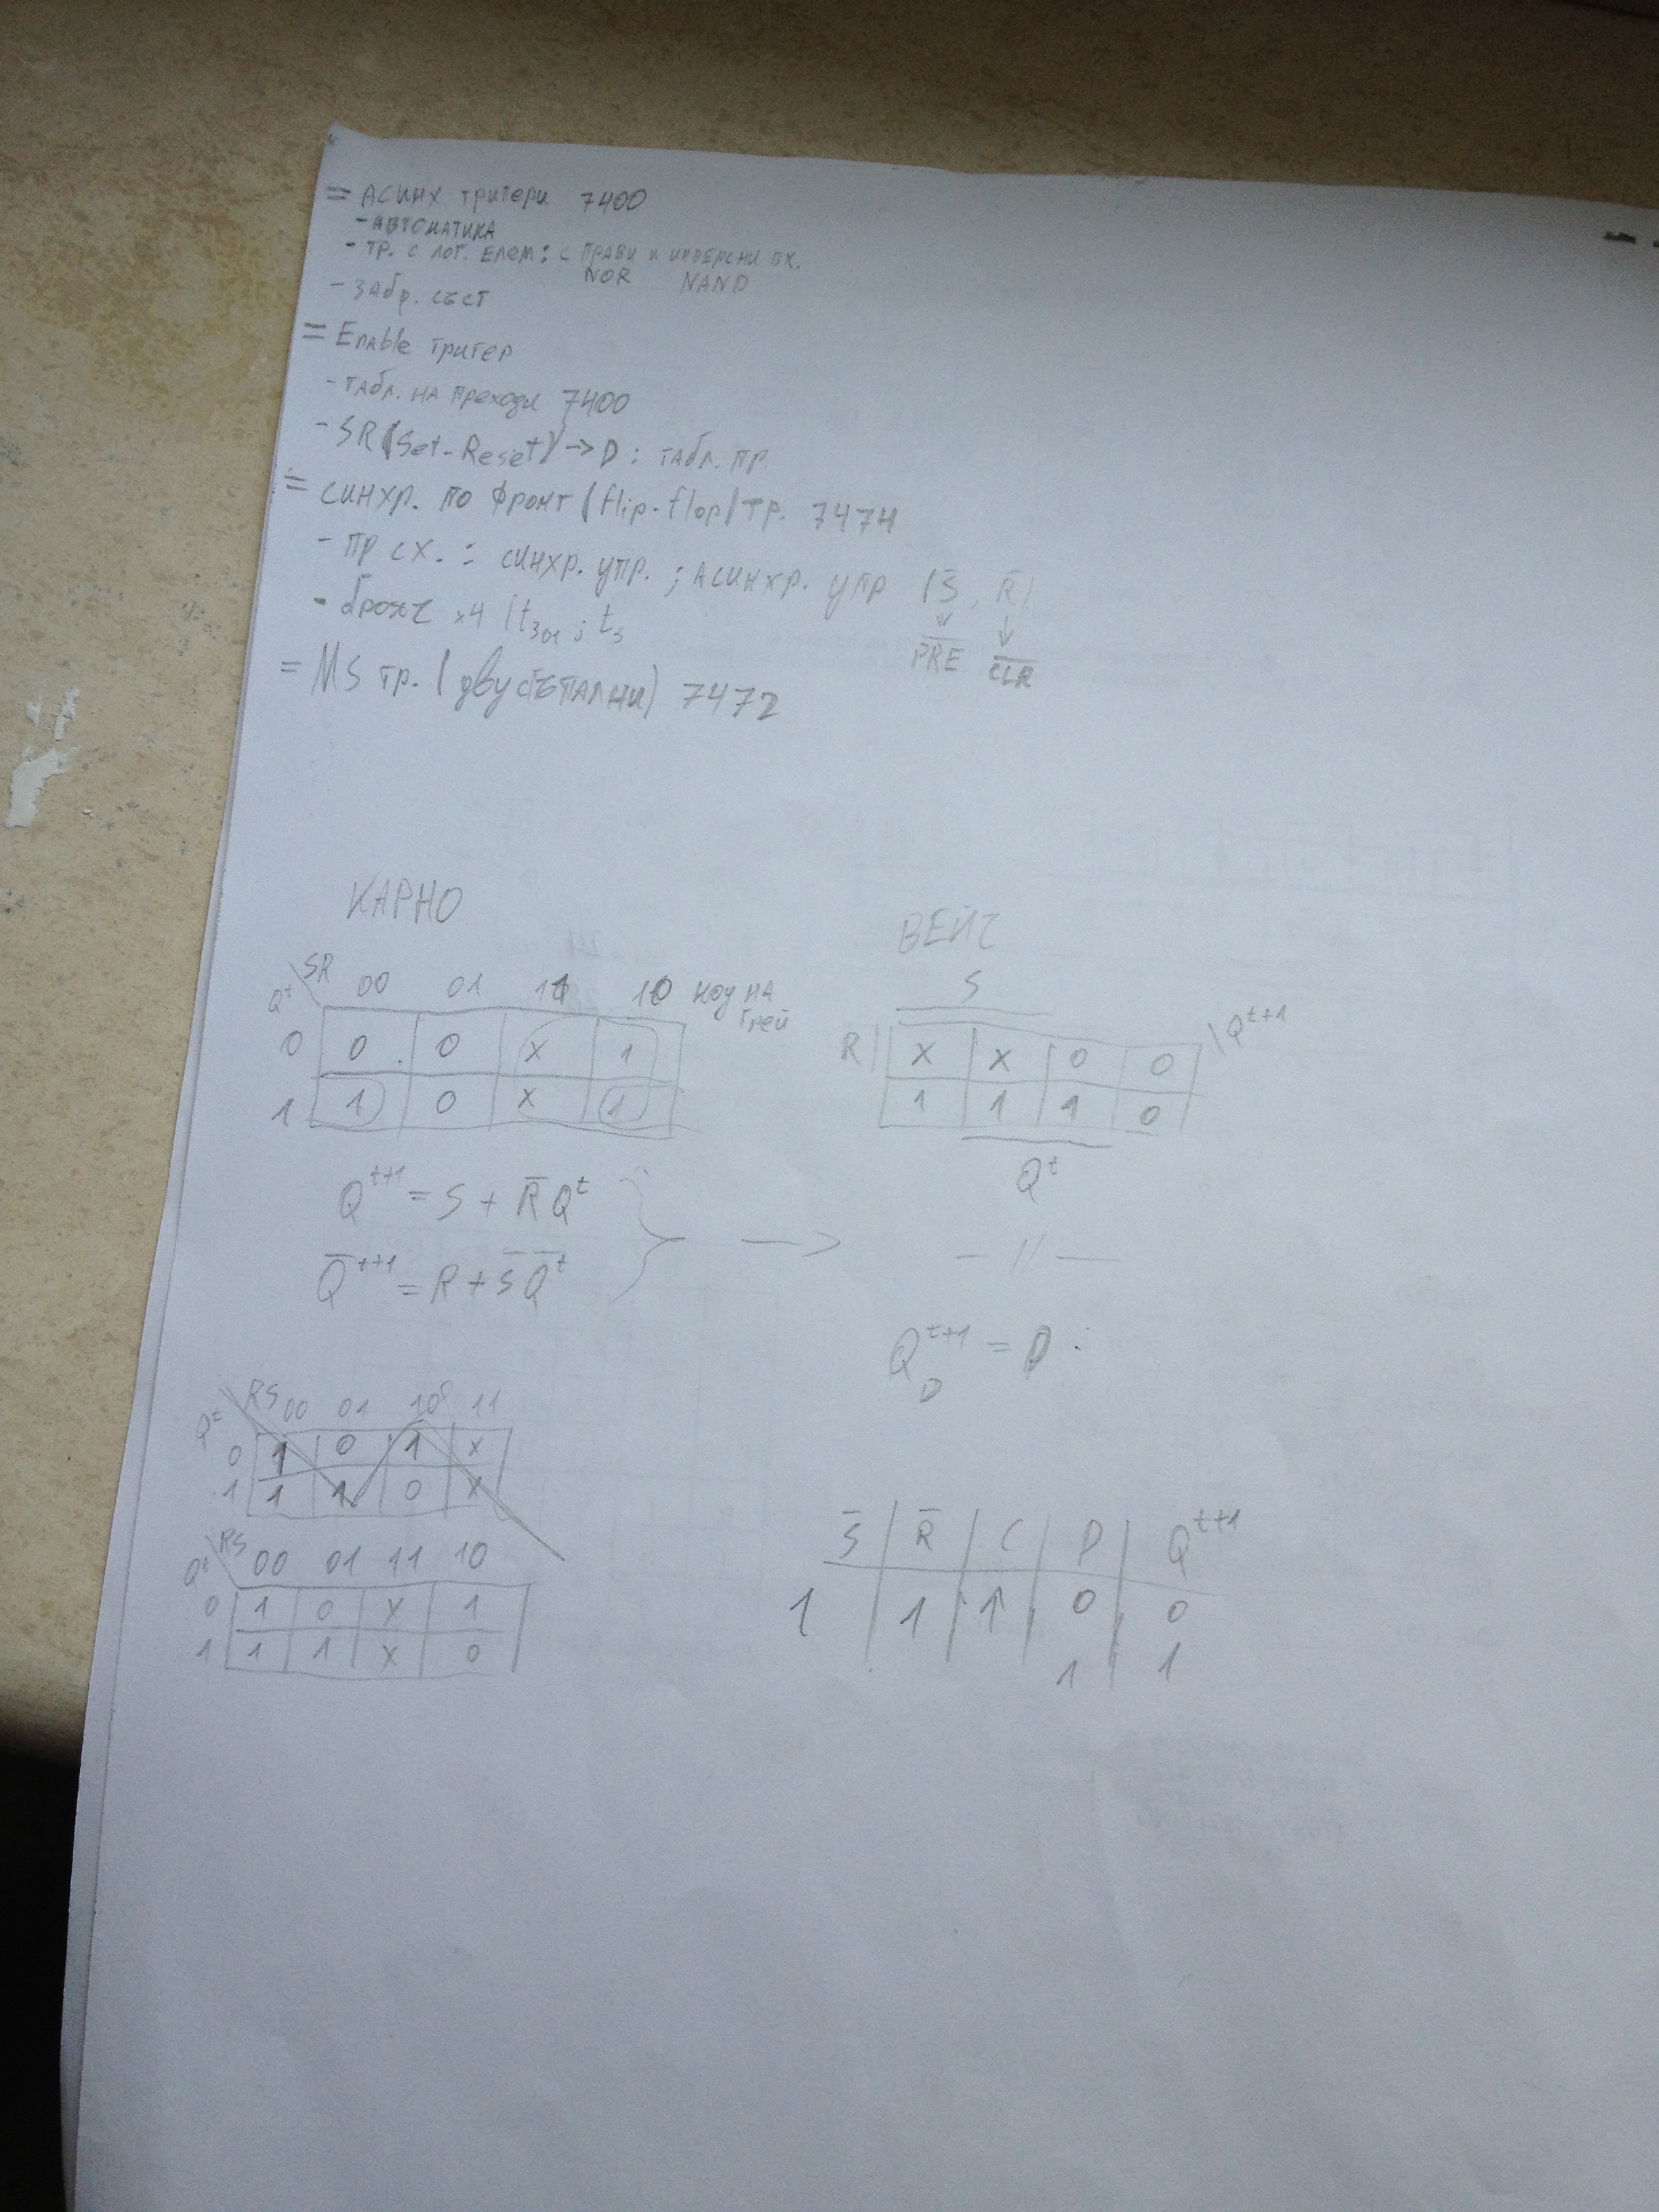 = АСИНХ тригери 7400
- АВТОМАТИКА
- ТР. С ЛОГ. ЕЛЕМ: С ПРАВИ И ИНВЕРСНИ ВХ.
NOR NAND
- ЗАБР. СЪСТ
= Enable тригер
- ТАБЛ. НА преходи 7400
- SR (Set-Reset) → D : ТАБЛ. ПР.
= СИНХР. ПО ФРОНТ (flip-flop) ТР. 7474
- ПР СХ. : СИНХР. УПР. ; АСИНХР. УПР (S̅, R̅)
PRE CLR
- брояч x4 ;
= MS ТР. (двустъпални) 7472
КАРНО
Qᵗ \ SR 00 01 11 10 код НА Грей
0 0 0 x 1
1 1 0 x 1
Qᵗ⁺¹ = S + R̅Qᵗ
Q̅ᵗ⁺¹ = R + S̅Q̅ᵗ
ВЕЙЧ
S
R x x 0 0 Qᵗ⁺¹
1 1 1 0
Qᵗ
→ — // —
Q_Dᵗ⁺¹ = D
Qᵗ \ RS 00 01 10 11
0 1 0 1 x
1 1 1 0 x
Qᵗ \ RS 00 01 11 10
0 1 0 x 1
1 1 1 x 0
S̅ R̅ C D Qᵗ⁺¹
1 1 ↑ 0 0
1 1